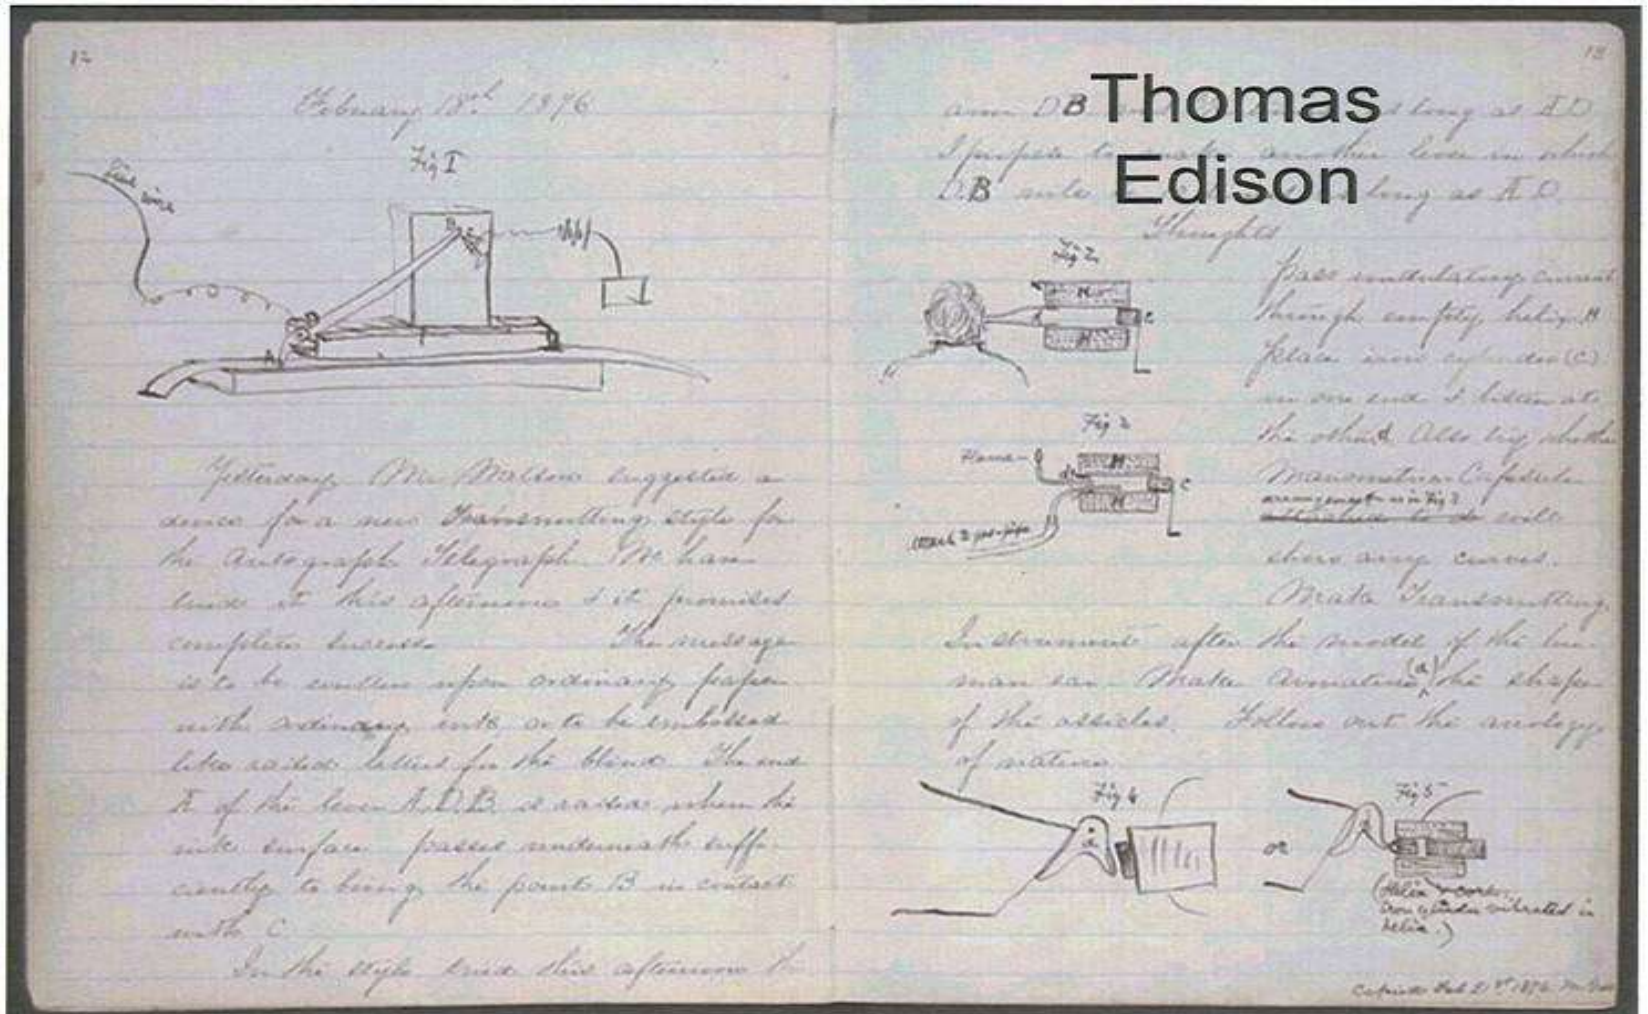 12
February 18th 1876
Fig I
line wire
B
A
Yesterday Mr. Watson suggested a
device for a new Transmitting style for
the Autograph Telegraph. We have
tried it this afternoon & it promises
complete success. The message
is to be written upon ordinary paper
with ordinary ink or to be embossed
like raised letters for the blind. The end
A of the lever A.D.B. is raised when the
ink surface passes underneath suffi-
ciently to bring the point B in contact
with C.
In the style tried this afternoon the
13
arm DB long as A D
I propose to make another lever in which
D.B will long as A D.
Thomas
Edison
Thoughts
Fig 2
H
H
C
Pass undulating current
through empty helix H
place iron cylinder (C)
in one end & listen at
the other. Also try whether
Manometric Capsule
arrangement as in Fig 3
will
show any curves.
Fig 3
Flame
H
H
C
gas-pipe
Make Transmitting
Instrument after the model of the hu-
man ear. Make Armature (a) the shape
of the ossicles. Follow out the analogy
of nature.
Fig 4
a
or
Fig 5
(Helix & core
iron cylinder vibrated in
helix.)
Copied Feb 21st 1876